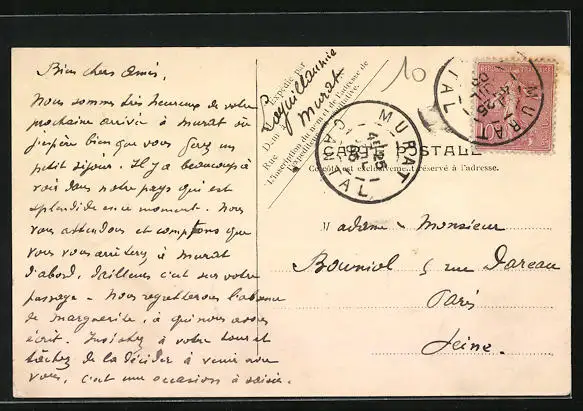 Bien chers Amis,
Nous sommes très heureux de votre
prochaine arrivée à Murat où
j'espère bien que vous ferez un
petit séjour. Il y a beaucoup à
voir dans notre pays qui est
splendide en ce moment. Nous
vous attendons et comptons que
vous vous arrêterez à Murat
d'abord, d'ailleurs c'est sur votre
passage - Nous regretterons l'absence
de marguerite, à qui nous avons
écrit. Insistez à votre tour et
tâchez de la décider à venir avec
vous, c'est une occasion à saisir.
Expédié par
Murat
Rue
L'inscription du nom et de l'adresse de
l'expéditeur est facultative.
10
MURAT
CANTAL
4 25
MURAT
CANTAL
4 25
10
CARTE POSTALE
Ce côté est exclusivement réservé à l'adresse.
Madame & Monsieur
Bouniol 5 rue Dareau
Paris
Seine.